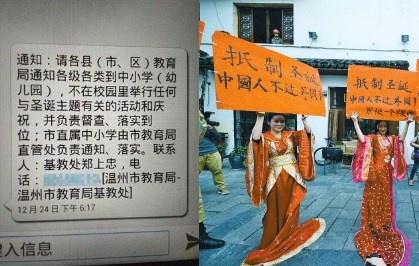 通知：请各县（市、区）教育
局通知各级各类到中小学（幼
儿园），不在校园里举行任何
与圣诞主题有关的活动和庆
祝，并负责督查、落实到
位；市直属中小学由市教育局
直管处负责通知、落实。联系
人：基教处郑上忠，电
话：[温州市教育局-
温州市教育局基教处]
12月24日下午6:17
键入信息
抵制圣诞
中國人不过
抵制圣诞
中國人不过